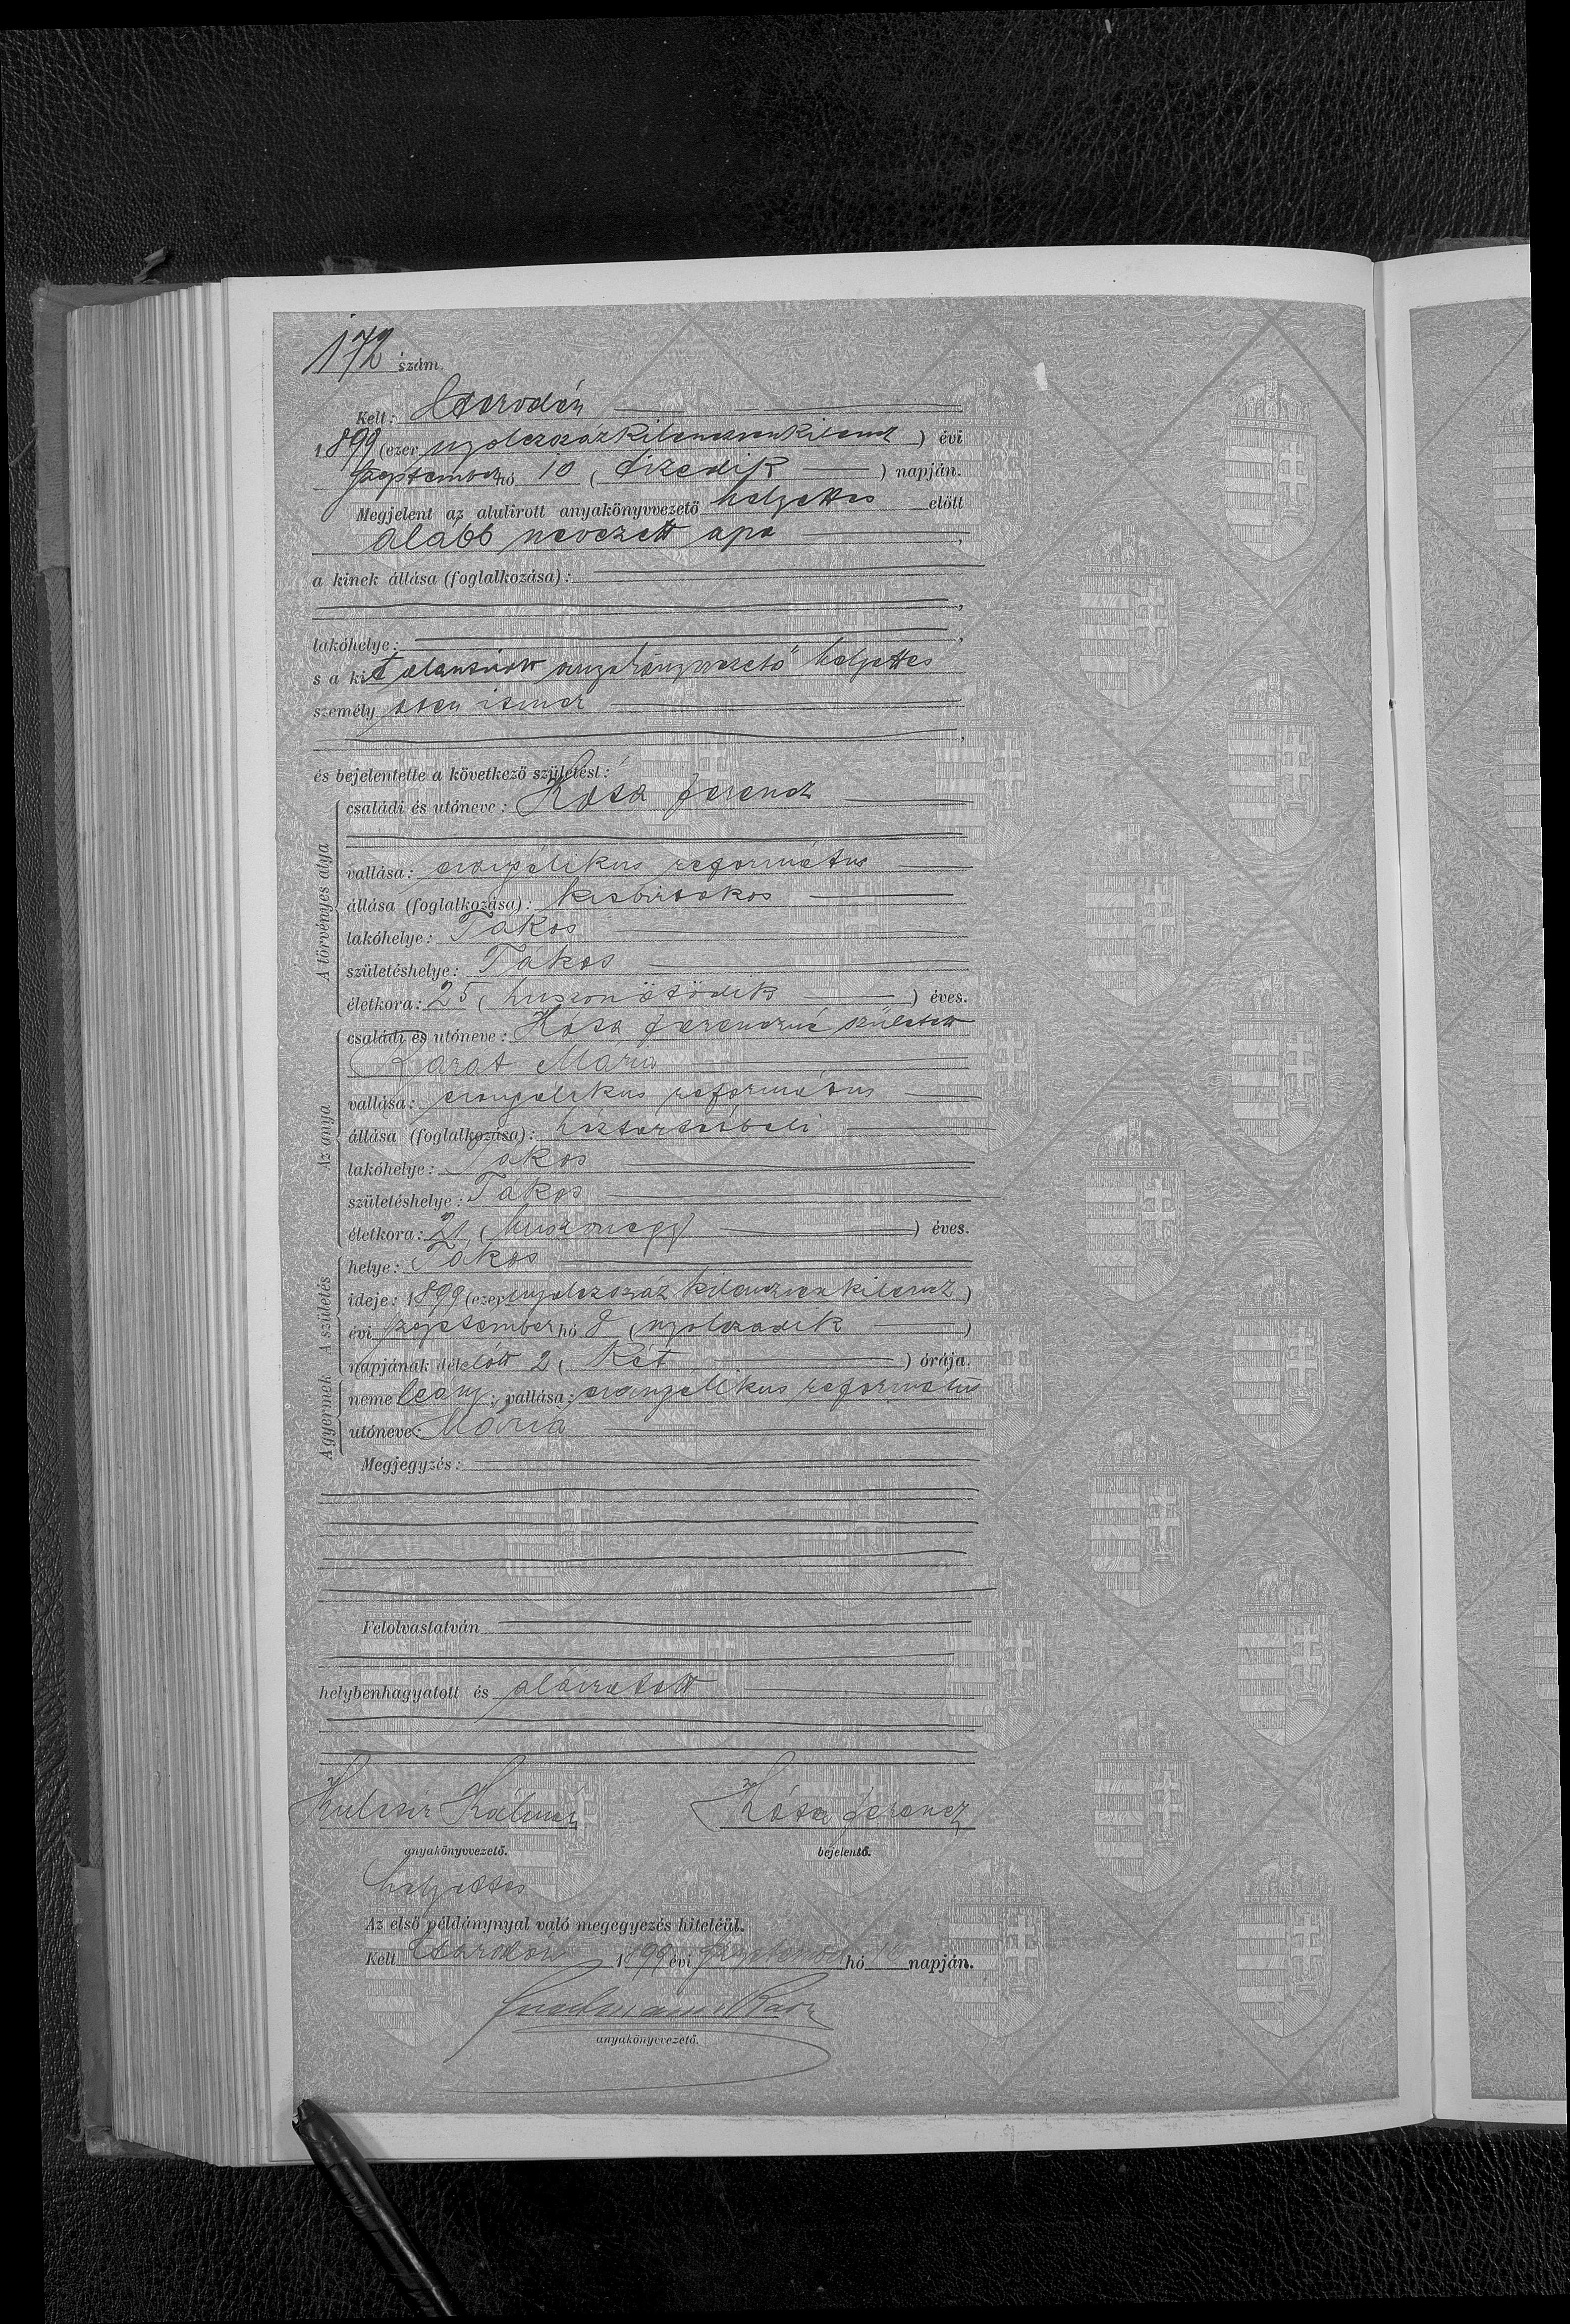 172 szám.
Kelt: Csarodán
1899 (ezer nyolczszázkilenczvenkilencz) évi
szeptember hó 10 (tizedik) napján.
Megjelent az alulirott anyakönyvvezető helyettes előtt
alább nevezett apa,
a kinek állása (foglalkozása):
lakóhelye:
s a kit alantirott anyakönyvvezető helyettes
személyesen ismer
és bejelentette a következő születést:
A törvényes atya
családi és utóneve: Kósa Ferencz
vallása: evangélikus református
állása (foglalkozása): kisbirtokos
lakóhelye: Tákos
születéshelye: Tákos
életkora: 25 (huszonötödik) éves.
Az anya
családi és utóneve: Kósa Ferenczné született
Karat Mária
vallása: evangélikus református
állása (foglalkozása): háztartásbeli
lakóhelye: Tákos
születéshelye: Tákos
életkora: 21 (huszonegy) éves.
A születés
helye: Tákos
ideje: 1899 (ezer nyolczszáz kilenczvenkilencz)
évi szeptember hó 8 (nyolczadik)
napjának délelőtt 2 (Két) órája.
A gyermek
neme leány; vallása: evangelikus református
utóneve: Mária
Megjegyzés:
Felolvastatván
helybenhagyatott és aláiratott
Kulcsár Kálmán Kósa Ferencz
anyakönyvvezető. bejelentő.
helyettes
Az első példánynyal való megegyezés hiteléül.
Kelt Csarodán 1899 évi szeptember hó 10 napján.
anyakönyvvezető.